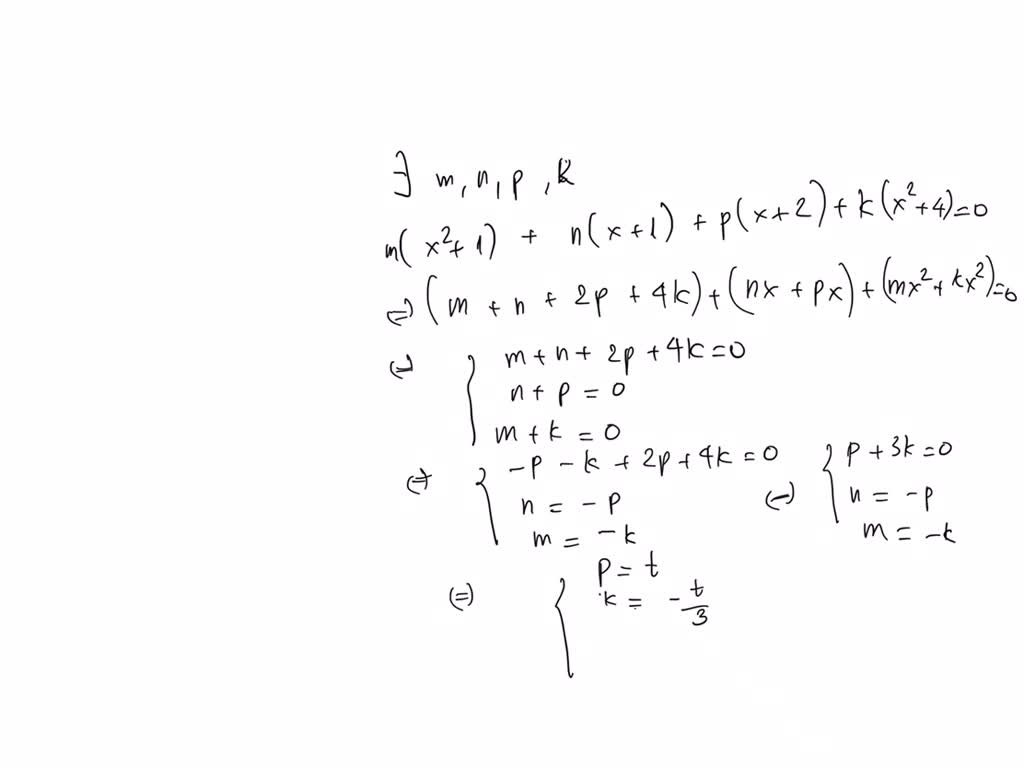 ∃ m, n, p, k
m(x²+1) + n(x+1) + p(x+2) + k(x²+4)=0
(=) (m + n + 2p + 4k) + (nx + px) + (mx² + kx²)=0
(=) { m + n + 2p + 4k = 0
n + p = 0
m + k = 0
(=) { -p - k + 2p + 4k = 0
n = -p
m = -k
(=) { p + 3k = 0
n = -p
m = -k
(=) { p = t
k = -t/3